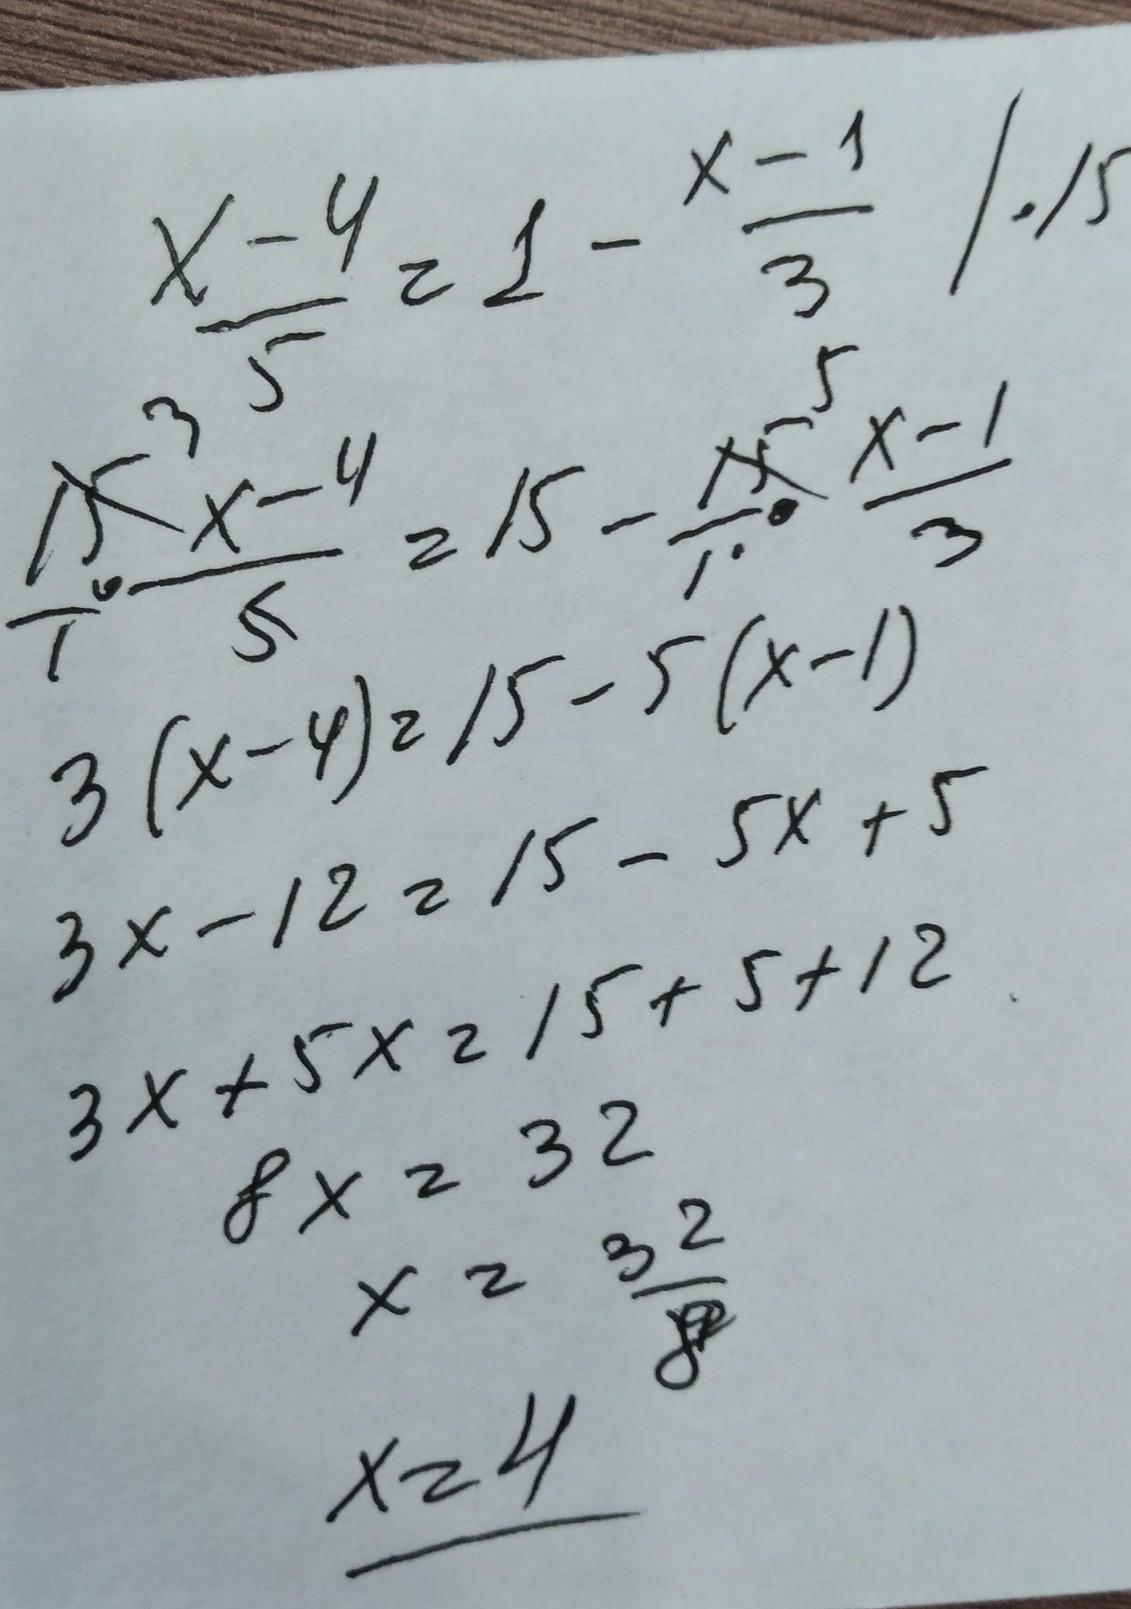 x-4/5 = 1 - x-1/3 /·15
15³/1 · x-4/5 = 15 - 15⁵/1 · x-1/3
3(x-4)=15-5(x-1)
3x-12=15-5x+5
3x+5x=15+5+12
8x=32
x=32/8
x=4